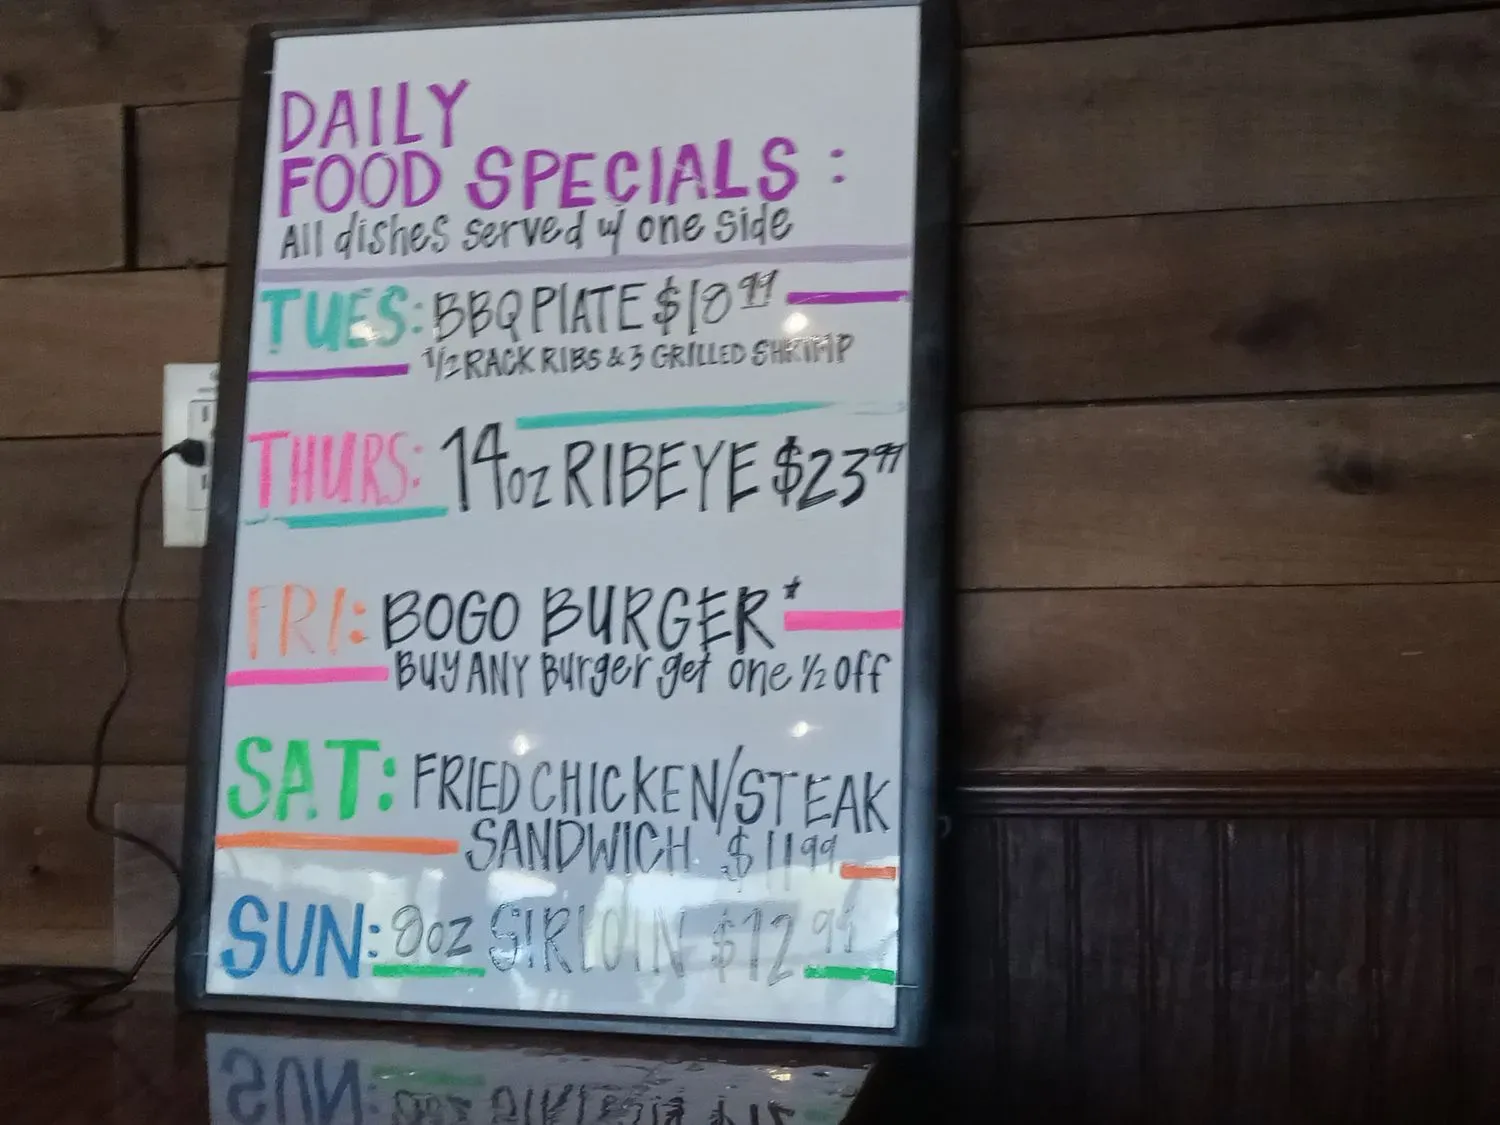 DAILY
FOOD SPECIALS :
All dishes served w/ one side
TUES: BBQ PLATE $18.99
1/2 RACK RIBS & 3 GRILLED SHRIMP
THURS: 14oz RIBEYE $23.99
FRI: BOGO BURGER*
BUY ANY Burger get one 1/2 off
SAT: FRIED CHICKEN/STEAK
SANDWICH $11.99
SUN: 8oz SIRLOIN $12.99